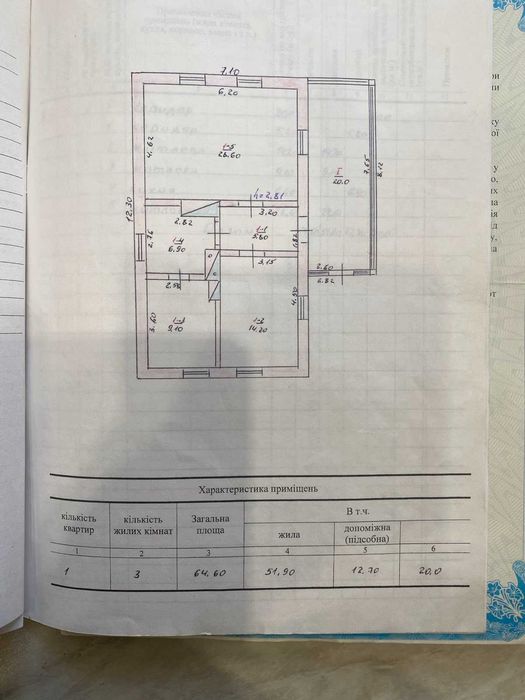 7.10
6.20
4.62
1-5
28.60
I
20.0
7.65
8.12
12.30
h=2.81
2.82
3.20
2.76
1-4
6.90
1-1
5.80
1.82
3.15
2.60
2.56
4.50
3.60
1-3
9.10
1-2
14.20
Характеристика приміщень
кількість квартир
кількість жилих кімнат
Загальна площа
В т.ч.
жила
допоміжна (підсобна)
1 2 3 4 5 6
1 3 64,60 51,90 12,70 20,0